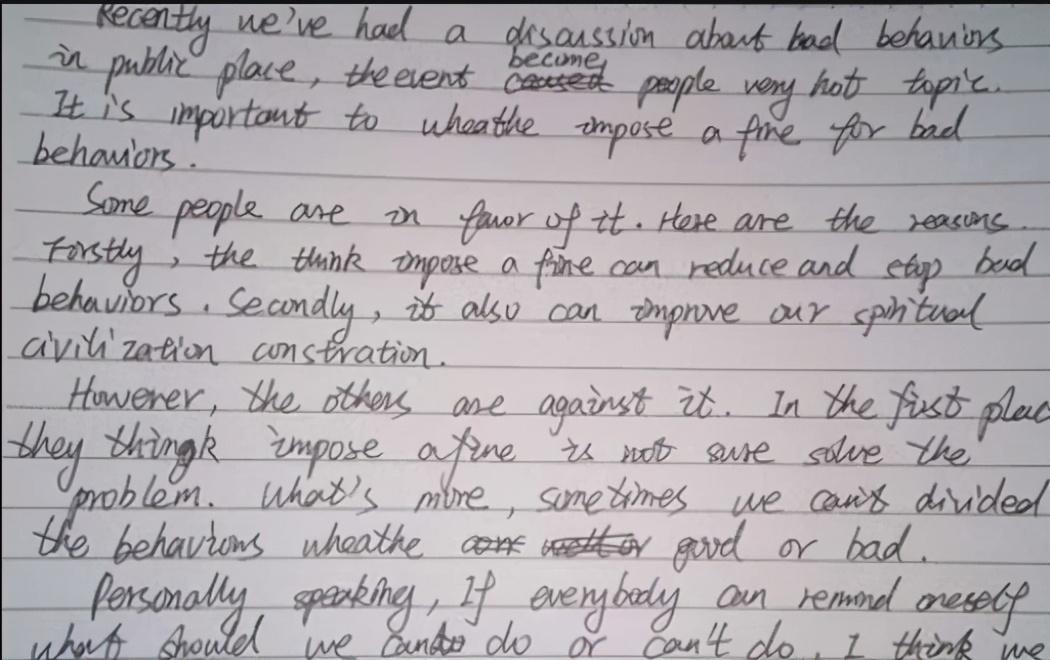 Recently we've had a discussion about bad behaviors
become
in public place, the event caused people very hot topic.
It is important to wheathe impose a fine for bad
behaviors.
Some people are in favor of it. Here are the reasons.
Forstly, the think impose a fine can reduce and stop bad
behaviors. Secondly, it also can improve our spiritual
civilization constration.
However, the others are against it. In the first plac
they thingk impose a fine is not sure solve the
problem. What's more, sometimes we can't divided
the behaviors wheathe good or bad.
Personally speaking, If everybody can remind oneself
what should we do or can't do. I think we